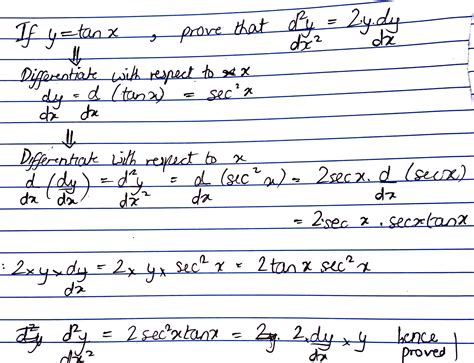 If y = tan x , prove that d²y/dx² = 2y.dy/dx
⇓
Differentiate with respect to x
dy/dx = d/dx (tan x) = sec² x
⇓
Differentiate with respect to x
d/dx (dy/dx) = d²y/dx² = d/dx (sec² x) = 2sec x . d/dx (sec x)
= 2.sec x . secx tan x
: 2 × y × dy/dx = 2 × y × sec² x = 2 tan x sec² x
d²y/dx² = 2 sec² x tan x = 2. dy/dx × y hence
proved